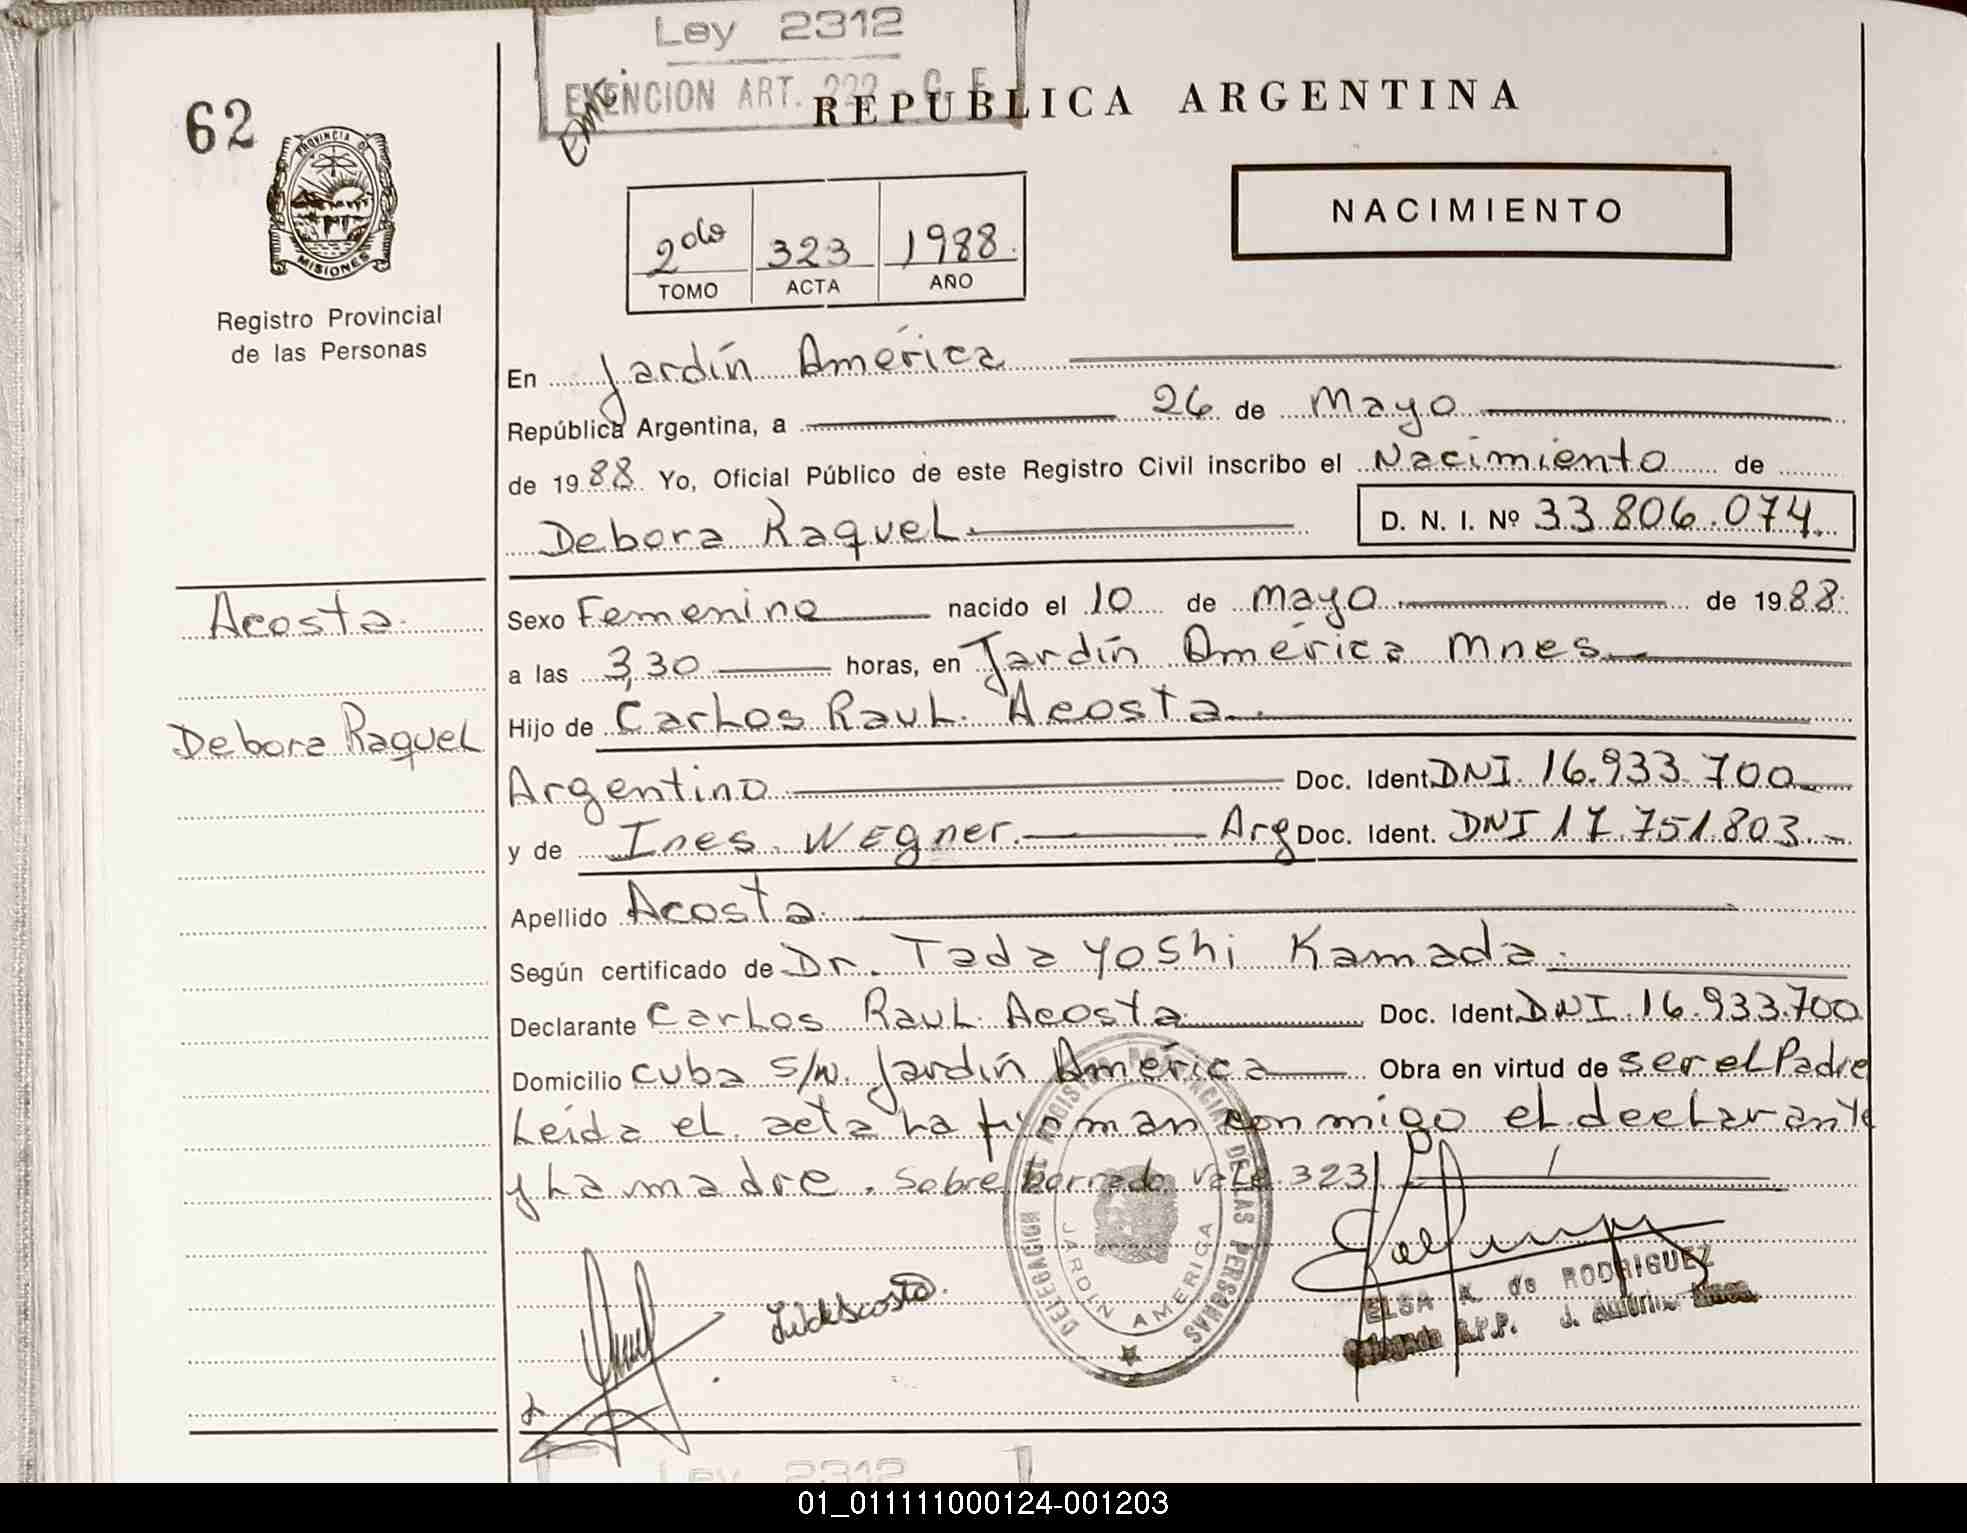 Ley 2312
EXENCION ART. 222 - C. F.
REPUBLICA ARGENTINA
62
PROVINCIA DE
MISIONES
Registro Provincial
de las Personas
2do 323 1988.
TOMO ACTA AÑO
NACIMIENTO
En Jardín América
República Argentina, a 26 de Mayo
de 1988. Yo, Oficial Público de este Registro Civil inscribo el Nacimiento de
Debora Raquel. D. N. I. Nº 33.806.074.
Acosta.
Debora Raquel
Sexo Femenino nacido el 10 de mayo de 1988.
a las 3,30 horas, en Jardín América Mnes.
Hijo de Carlos Raul. Acosta.
Argentino Doc. Ident. DNI. 16.933.700
y de Ines. Wegner. Arg Doc. Ident. DNI 17.751.803.-
Apellido Acosta.
Según certificado de Dr. Tada Yoshi Kamada.
Declarante Carlos Raul. Acosta Doc. Ident. DNI. 16.933.700
Domicilio Cuba s/n. Jardín América Obra en virtud de ser el Padre
Leida el acta la firman conmigo el declarante
y la madre. Sobre borrado vale 323
DELEGACION DEL REGISTRO PROVINCIAL DE LAS PERSONAS
JARDIN AMERICA
ELSA K de RODRIGUEZ
Delegada R.P.P. J. América Mnes.
Ley 2312
01_011111000124-001203